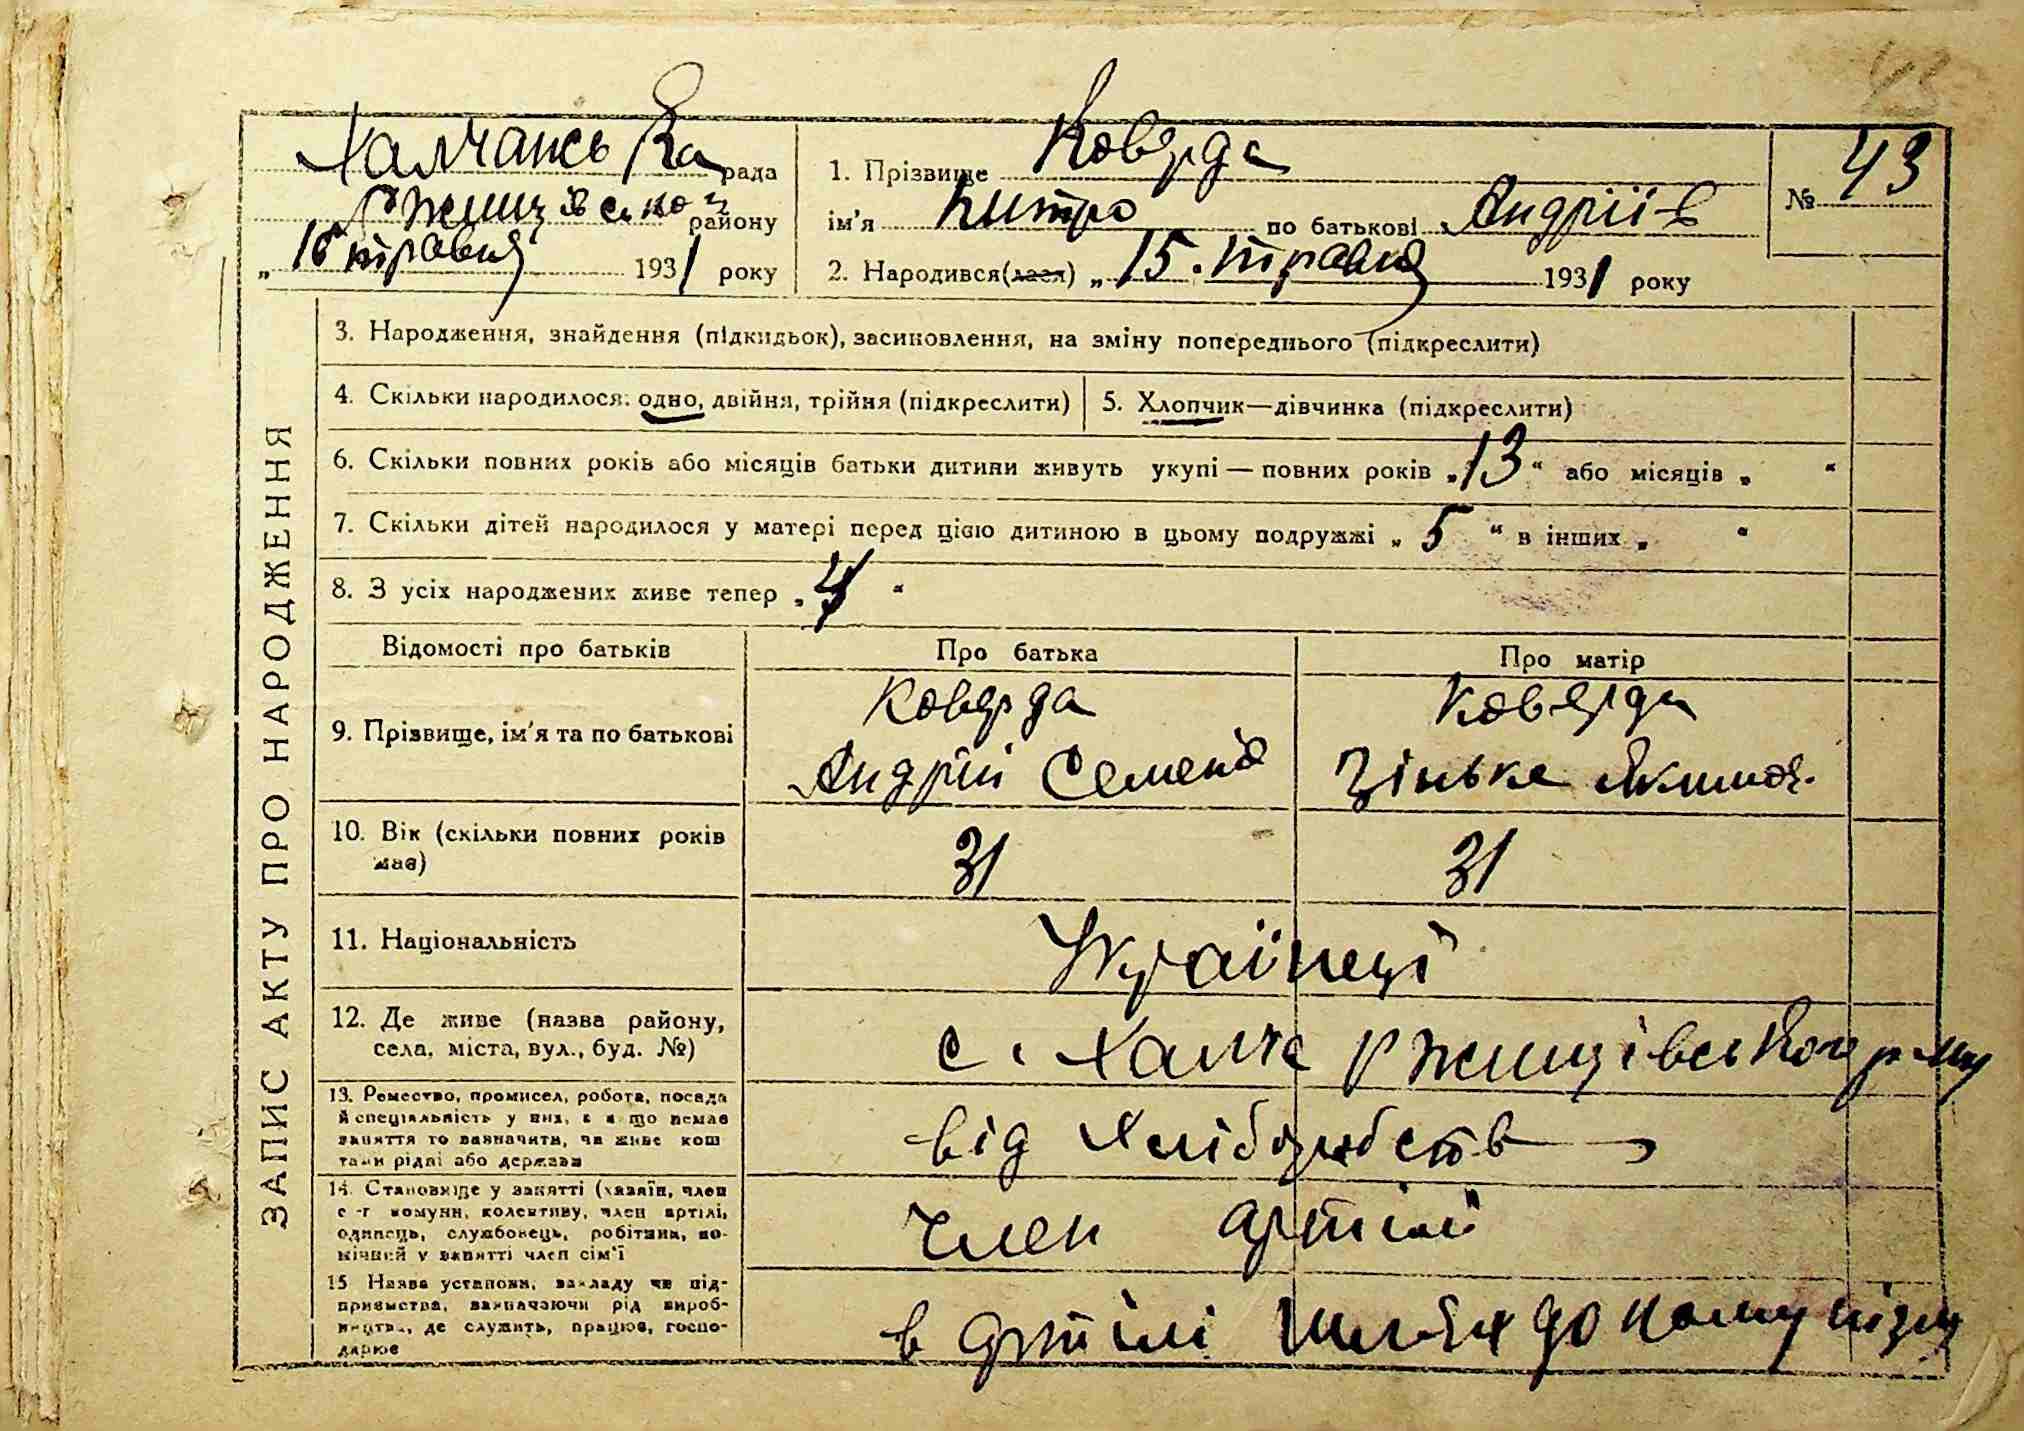 43
Халчанська рада
Ржищівського району
„ 16 травня 1931 року
1. Прізвище Коверда
ім'я Дмитро по батькові Андріїв
2. Народився(лася) „ 15. травня 1931 року
№ 43
ЗАПИС АКТУ ПРО НАРОДЖЕННЯ
3. Народження, знайдення (підкидьок), засиновлення, на зміну попереднього (підкреслити)
4. Скільки народилося: одно, двійня, трійня (підкреслити)
5. Хлопчик—дівчинка (підкреслити)
6. Скільки повних років або місяців батьки дитини живуть укупі — повних років „ 13 “ або місяців „ “
7. Скільки дітей народилося у матері перед цією дитиною в цьому подружжі „ 5 “ в інших „ “
8. З усіх народжених живе тепер „ 4 “
Відомості про батьків
Про батька
Про матір
9. Прізвище, ім'я та по батькові
Коверда
Андрій Семенів
Коверда
Зінька Якимов.
10. Вік (скільки повних років
має)
31
31
11. Національність
Українці
12. Де живе (назва району,
села, міста, вул., буд. №)
с. Халча Ржищівського р-ну
13. Ремество, промисел, робота, посада
й спеціяльність у них, а я що немає
заняття то зазначити, чи живе кош
тами рідні або держави
від хліборобств
14. Становище у занятті (хазяїн, член
с -г комуни, колективу, член артілі,
одинець, службовець, робітник, по-
мічний у занятті член сім'ї
член артілі
15 Назва установи, закладу чи під-
приємства, зазначаючи рід вироб-
ництва, де служить, працює, госпо-
дарює
в артілі Шлях до комунізму